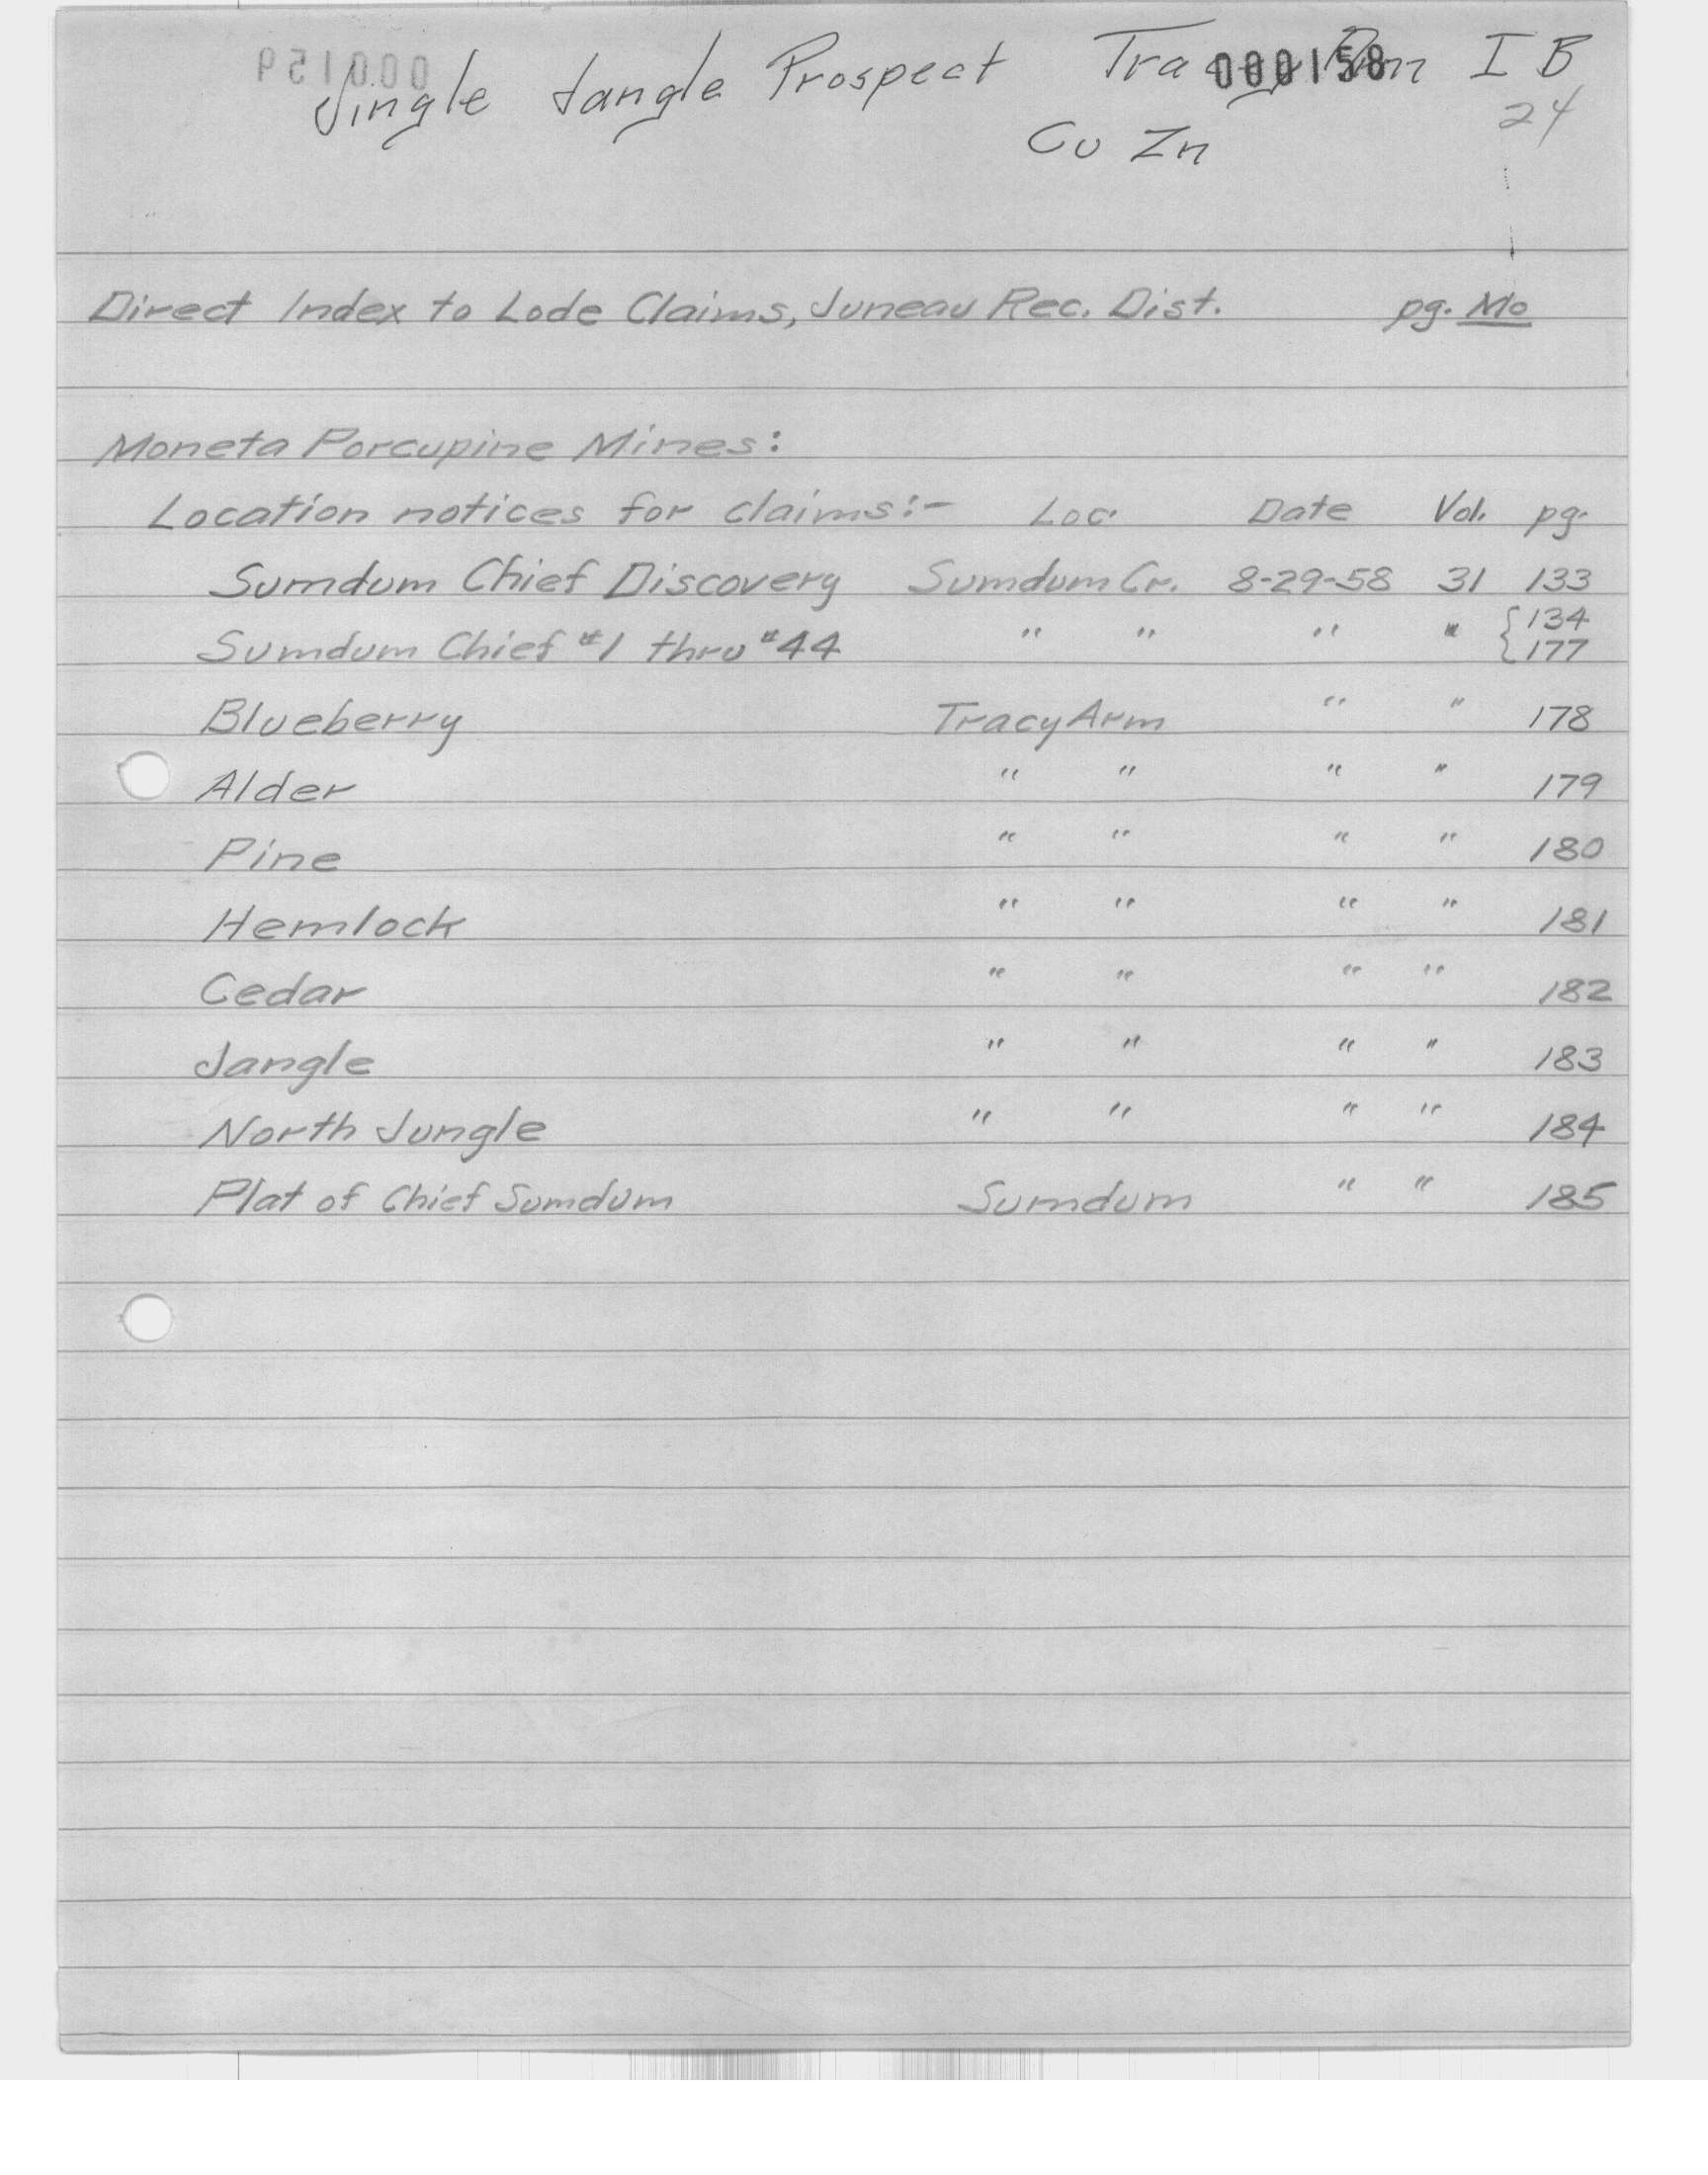 Jingle Jangle Prospect Tracy Arm I B
000158
000159
24
Cu Zn
Direct Index to Lode Claims, Juneau Rec. Dist. pg. Mo
Moneta Porcupine Mines:
Location notices for claims:- Loc. Date Vol. pg.
Sumdum Chief Discovery Sumdum Cr. 8-29-58 31 133
Sumdum Chief #1 thru #44 " " " " { 134
177
Blueberry Tracy Arm " " 178
Alder " " " " 179
Pine " " " " 180
Hemlock " " " " 181
Cedar " " " " 182
Jangle " " " " 183
North Jungle " " " " 184
Plat of Chief Sumdum Sumdum " " 185